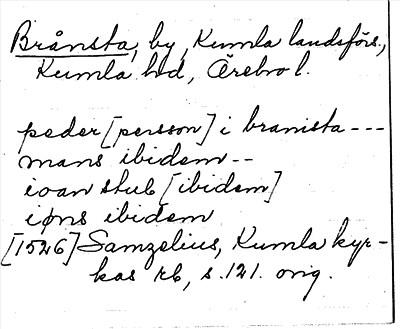 Brånsta, by, Kumla landsförs.,
Kumla hd, Örebro l.
peder [persson] i branista ---
mans ibidem --
ioan stub [ibidem]
iøns ibidem
[1526] Samzelius, Kumla kyr-
kas rb, s. 121. orig.